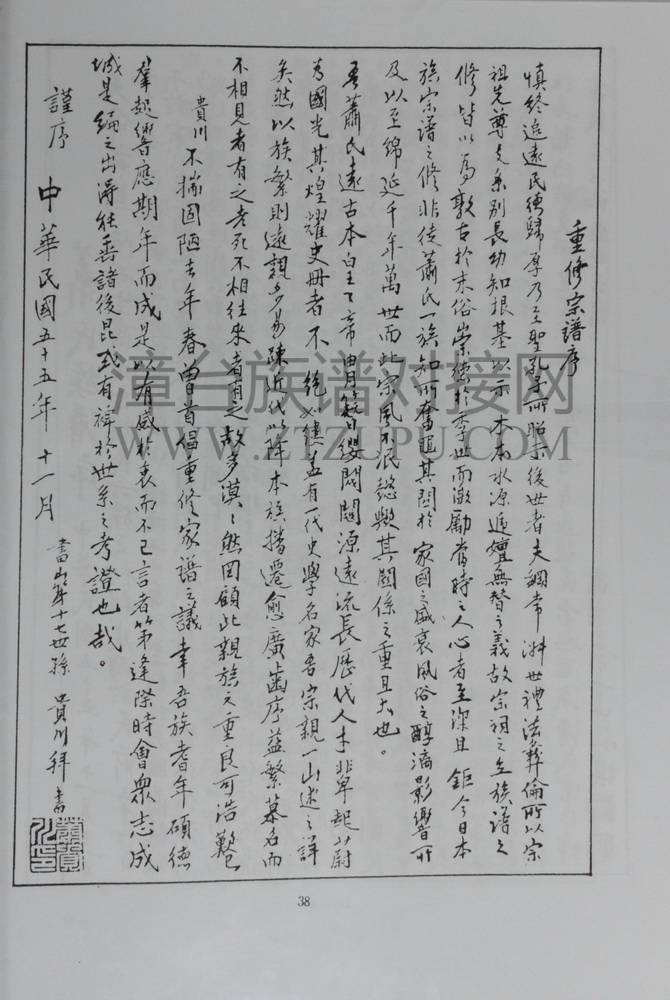 重修宗譜序
慎終追遠民德歸厚乃至聖孔子所昭示後世者夫綱常 世禮法彝倫所以宗
祖先尊支系別長幼知根基以示木本水源遞嬗無替之義故宗祠之立族譜之
修皆以為敦古於末俗崇德於季世而激勵當時之人心者至深且鉅今日本
族宗譜之修非徒蕭氏一族知所奮 其關於家國之盛衰風俗之醇漓影響所
及以至綿延千年萬世而此宗風不泯 歟其關係之重且大也。
吾蕭氏遠古本自王 帝 簪纓閥閱源遠流長歷代人才輩起以蔚
為國光其煌耀史冊者不絕 蓋有一代史學名家吾宗親一山述之詳
矣然以族繁則遠親多易疎近代以降本族播遷愈廣齒序益繁慕名而
不相見者有之老死不相往來者有之故多漠漠然罔顧此親族之重良可浩歎
貴川不揣固陋去年春曾首倡重修家譜之議幸吾族耆年碩德
羣起響應期年而成是以有感於衷而不已言者第逢際時會眾志成
城是編之出得能垂諸後昆或有裨於世系之考證也哉。
謹序 中華民國五十五年十一月
書山第十七世孫 貴川拜書
漳台族谱对接网
WWW.ZTZUPU.COM
38